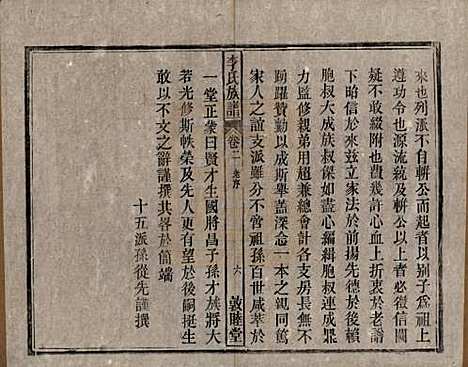 來也列派不自輧公而起者以別子爲祖上
遵功令也源流統及輧公以上者必徵信闕
疑不敢綴附也費幾許心血上折衷於老譜
下貽信於來兹立家法於前垂先德於後賴
胞叔大成族叔傑如盡心編緝胞叔連成杲
力監修親弟用超兼總會計各支房長無不
踴躍贊勷以成斯舉蓋深念一本之親同篤
家人之誼支派雖分不啻祖孫百世咸萃於
李氏族譜
卷二
老序
六
敦睦堂
一堂正蒙曰賢才生國將昌子孫才族將大
若光修斯帙榮及先人更有望於後嗣挺生
敢以不文之辭謹撰其畧於簡端
十五派孫從先謹撰